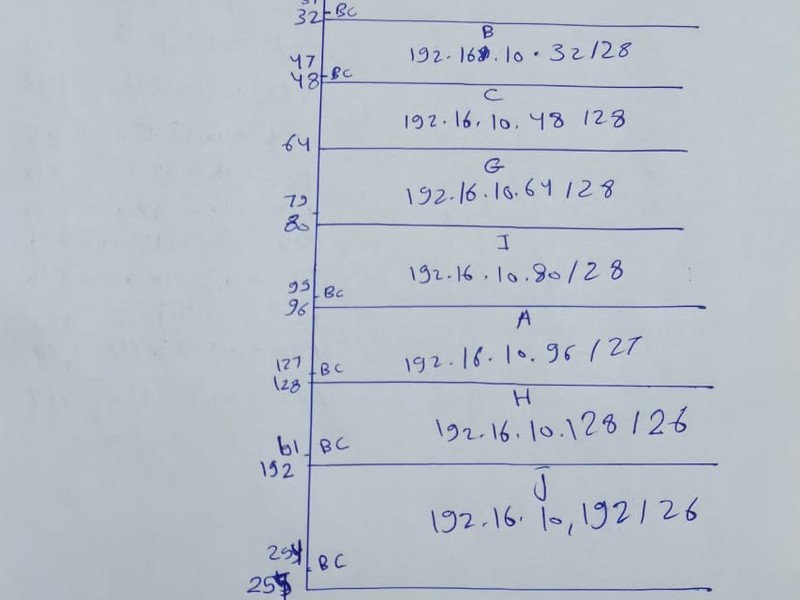 32 BC
B
192.168.10.32/28
47
48 BC
C
192.16.10.48/28
64
G
192.16.10.64/28
79
80
I
192.16.10.80/28
95 BC
96
A
192.16.10.96/27
127 BC
128
H
192.16.10.128/26
BC
192
J
192.16.10,192/26
254 BC
255